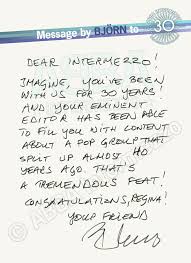 Message by BJÖRN to
30
DEAR INTERMEZZO!
IMAGINE, YOU'VE BEEN
WITH US FOR 30 YEARS!
AND YOUR EMINENT
EDITOR HAS BEEN ABLE
TO FILL YOU WITH CONTENT
ABOUT A POP GROUP THAT
SPLIT UP ALMOST 40
YEARS AGO. THAT'S
A TREMENDOUS FEAT!
CONGRATULATIONS, REGINA!
YOUR FRIEND